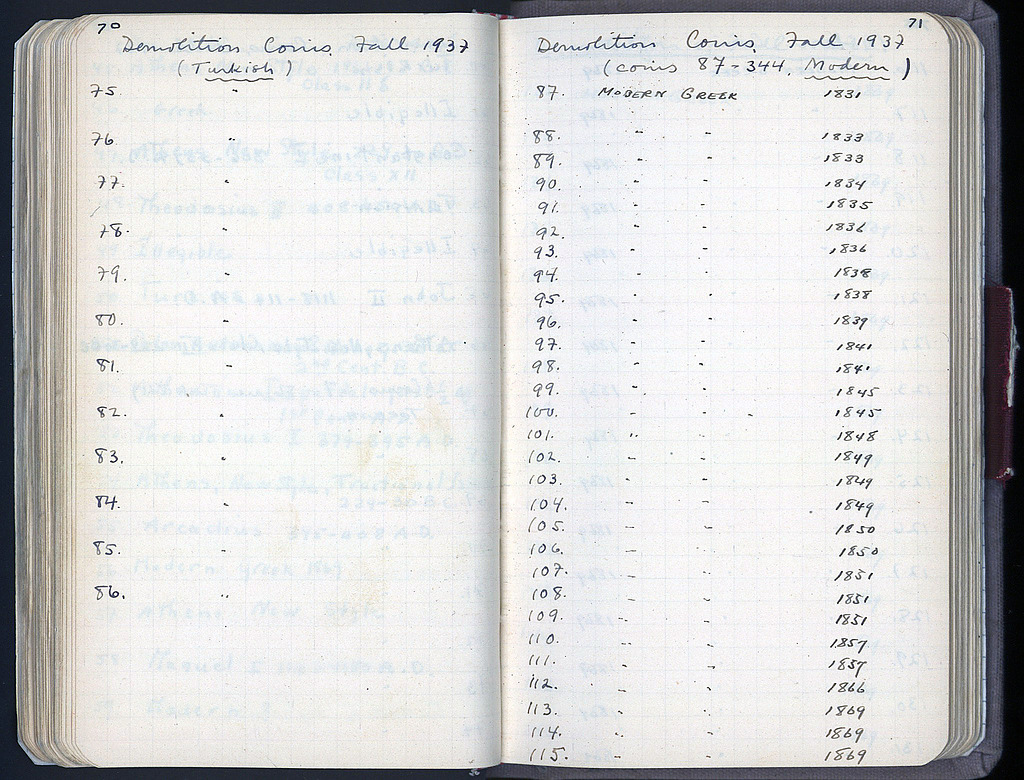 70
Demolition Coins, Fall 1937
(Turkish)
75. "
76. "
77. "
78. "
79. "
80. "
81. "
82. "
83. "
84. "
85. "
86. "
71
Demolition Coins, Fall 1937
(coins 87-344, Modern)
87. MODERN GREEK 1831
88. " " 1833
89. " " 1833
90. " " 1834
91. " " 1835
92. " " 1836
93. " " 1836
94. " " 1838
95. " " 1838
96. " " 1839
97. " " 1841
98. " " 1841
99. " " 1845
100. " " 1845
101. " " 1848
102. " " 1849
103. " " 1849
104. " " 1849
105. " " 1850
106. " " 1850
107. " " 1851
108. " " 1851
109. " " 1851
110. " " 1857
111. " " 1857
112. " " 1866
113. " " 1869
114. " " 1869
115. " " 1869